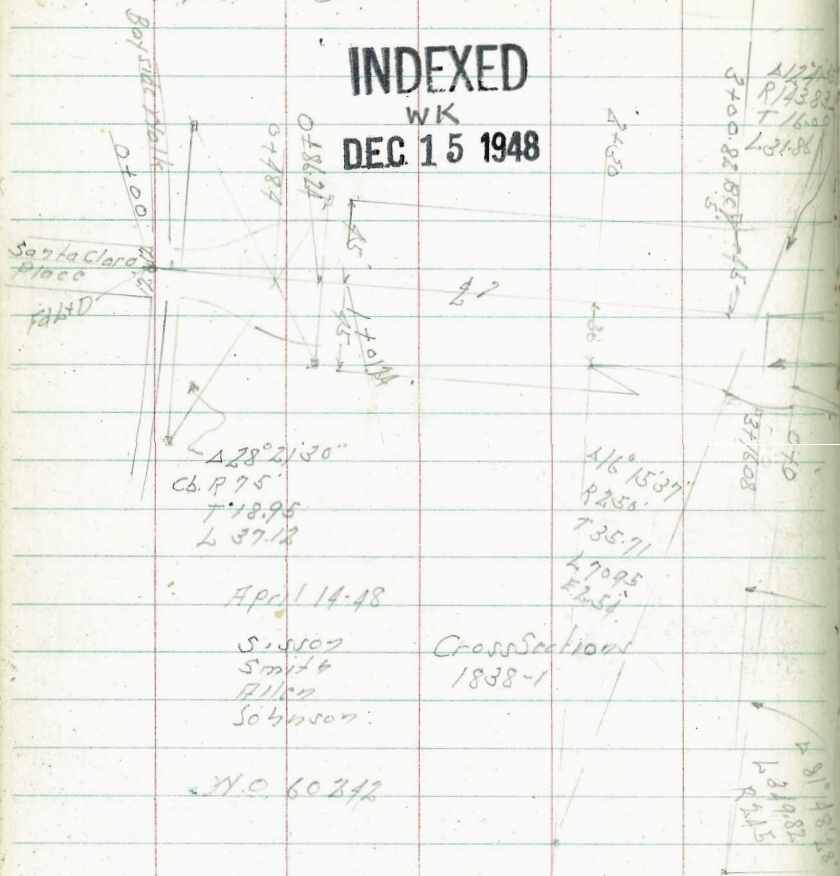 INDEXED
WK
DEC. 15 1948
Bayside Walk
0+00
Santa Clara
Place
Fd L+D
0+484
0+8621
45'
45
1+01
℄
2+50
30
3+00.82 BC
5'
45
R 143.83
T 16.00
L 31.86
3+1608
0+10
Δ 28°21'30"
Cb. R 75'
T 18.95
L 37.12
Δ16°15'37"
R 250'
T 35.71
L 70.95
E 2.54
April 14-48
Sisson
Smith
Allen
Johnson
Cross Sections
1838-1
W.O. 60242
Δ 81°48'28"
L 349.82
R 245